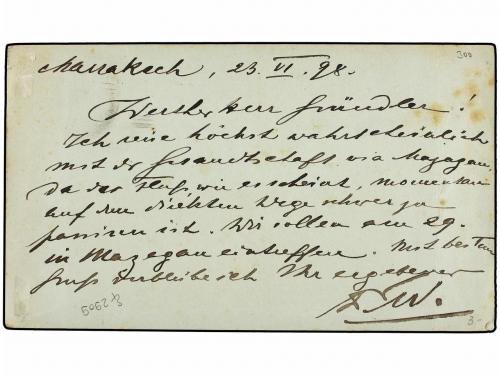 300
Marrakech, 23. VI. 98.
Werther Herr Gründler!
Ich reise höchst wahrscheinlich
mit der Gesandtschaft via Mazagan,
da der Fluß, wie es scheint, momentan
auf dem direkten Wege schwer zu
passiren ist. Wir sollen am 29.
in Mazagan eintreffen. Mit bestem
Gruß verbleibe ich Ihr ergebener
3-